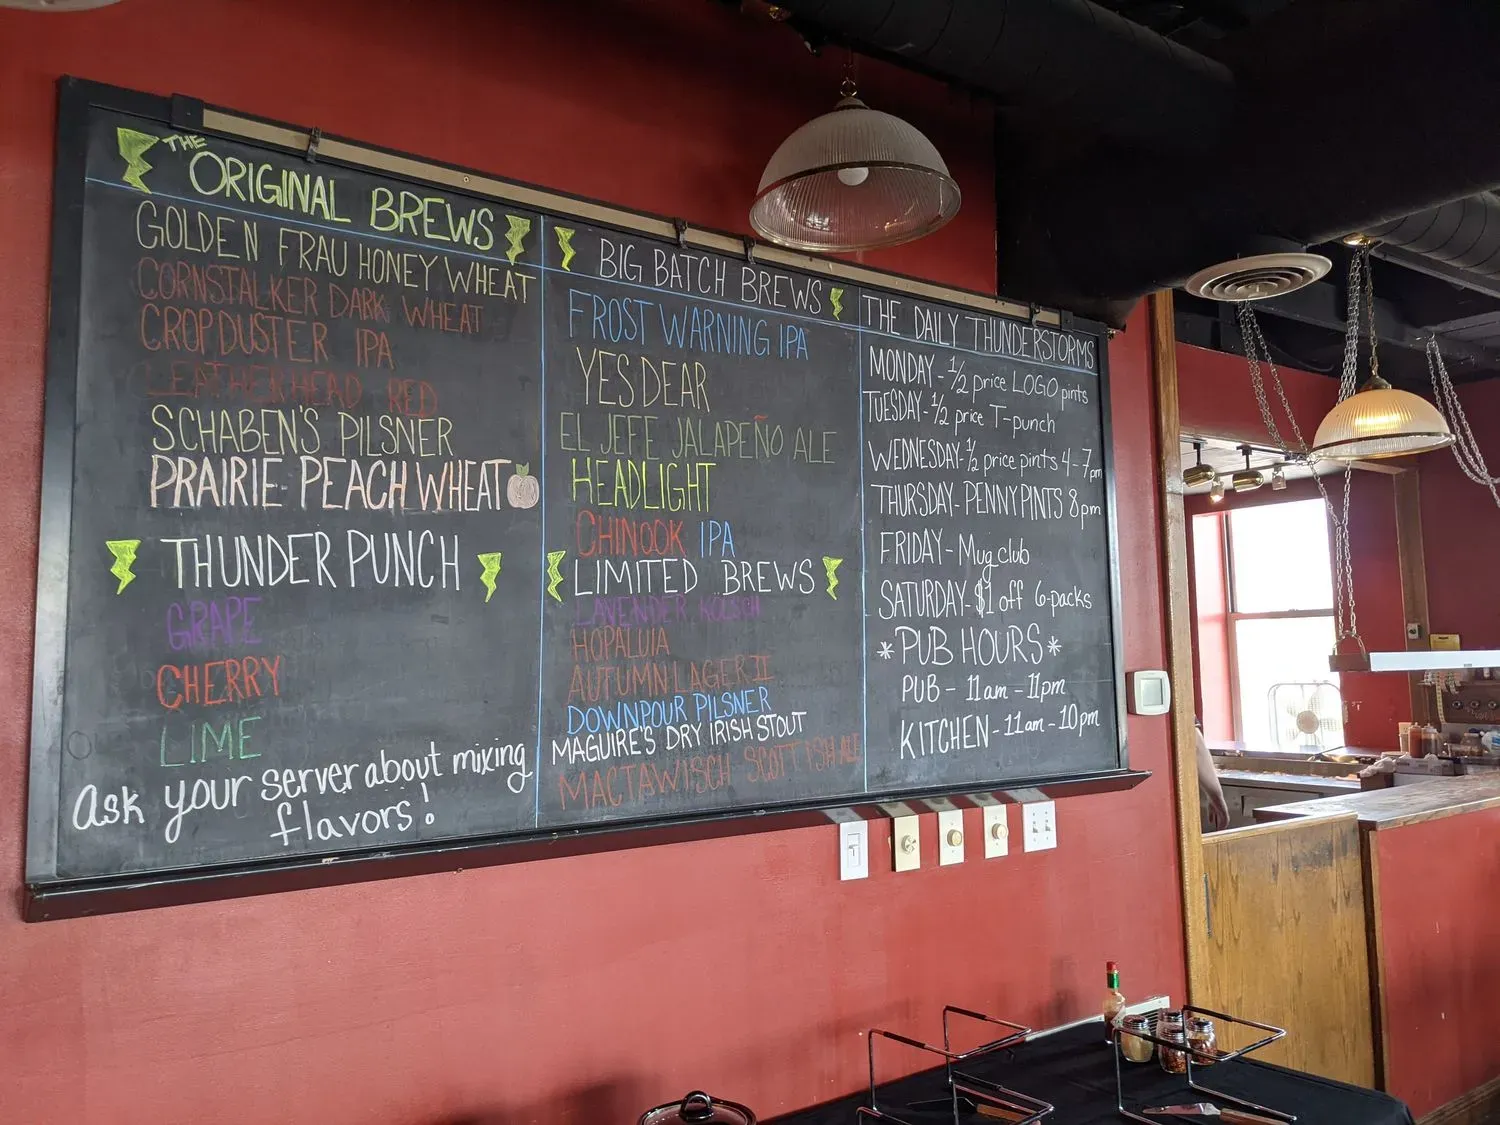 THE
ORIGINAL BREWS
GOLDEN FRAU HONEY WHEAT
CORNSTALKER DARK WHEAT
CROPDUSTER IPA
LEATHERHEAD RED
SCHABEN'S PILSNER
PRAIRIE PEACH WHEAT
THUNDER PUNCH
GRAPE
CHERRY
LIME
Ask your server about mixing
flavors!
BIG BATCH BREWS
FROST WARNING IPA
YES DEAR
EL JEFE JALAPEÑO ALE
HEADLIGHT
CHINOOK IPA
LIMITED BREWS
LAVENDER KOLSCH
HOPALUIA
AUTUMN LAGER II
DOWNPOUR PILSNER
MAGUIRE'S DRY IRISH STOUT
MACTAWISCH SCOTTISH ALE
THE DAILY THUNDERSTORMS
MONDAY - 1/2 price LOGO pints
TUESDAY - 1/2 price T-punch
WEDNESDAY - 1/2 price pints 4-7pm
THURSDAY - PENNY PINTS 8pm
FRIDAY - Mug club
SATURDAY - $1 off 6-packs
*PUB HOURS*
PUB - 11am - 11pm
KITCHEN - 11am - 10pm